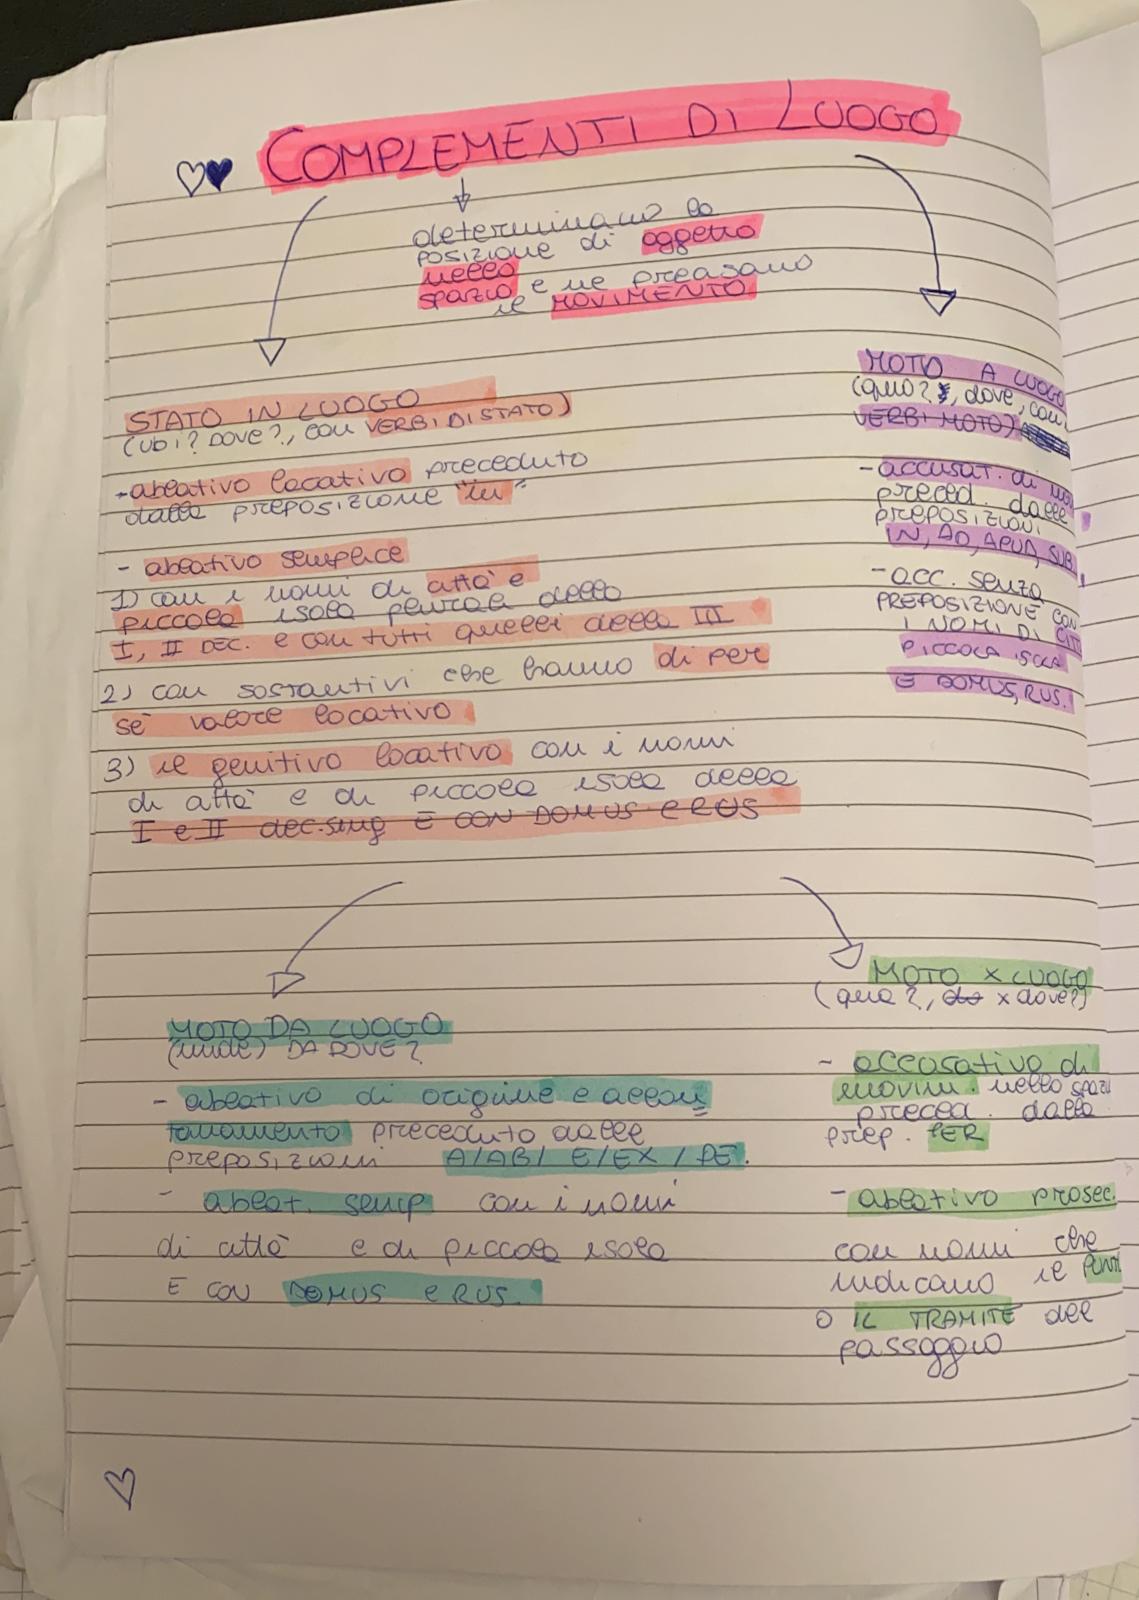 COMPLEMENTI DI LUOGO
determinano la
POSIZIONE di oggetto
nello
spazio e ne precisano
il MOVIMENTO
STATO IN LUOGO
(UBI? DOVE?, con VERBI DI STATO)
-ablativo locativo preceduto
dalla preposizione "in"
- ablativo semplice
1) con i nomi di città e
piccola isola plurale della
I, II DEC. e con tutti quelli della III
2) con sostantivi che hanno di per
sè valore locativo
3) il genitivo locativo con i nomi
di città e di piccola isola della
I e II dec. sing E CON DOMUS e RUS
MOTO A LUOGO
(quo?, dove, con
VERBI MOTO)
- accusat. di
preced. dalle
PREPOSIZIONI
IN, AD, APUD, SUB
- acc. senza
PREPOSIZIONE CON
I NOMI DI CIT
PICCOLA ISOLA
E DOMUS, RUS.
MOTO DA LUOGO
(unde) DA DOVE?
- ablativo di origine e allon
tanamento preceduto dalle
preposizioni A/AB/ E/EX / DE.
- ablat. semp con i nomi
di città e di piccola isola
E CON DOMUS e RUS.
MOTO X LUOGO
(qua?, x dove?)
- accusativo di
movim. nello spazi
preced. dalla
prep. PER
- ablativo prosec.
con nomi che
indicano il
O IL TRAMITE del
passaggio